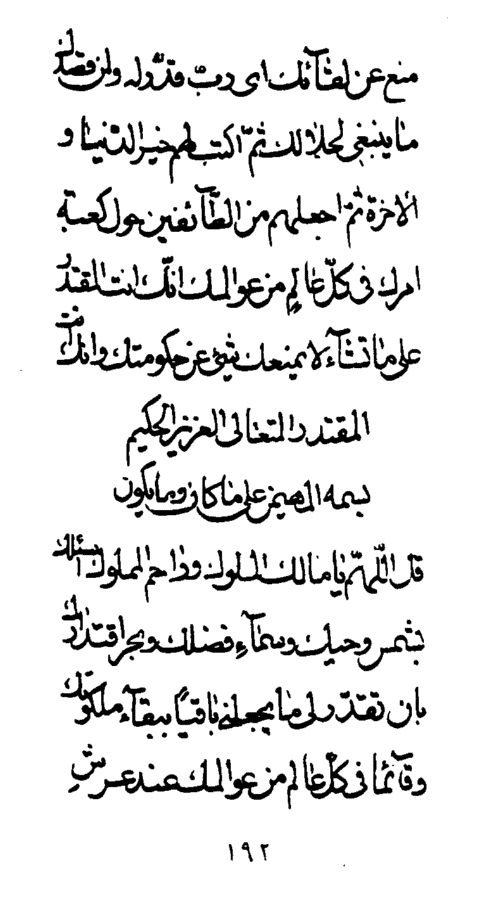 منع عن لقآئك اى ربّ قدّر له ولمن قصدك
ما ينبغى لجلالك ثمّ اكتب لهم خير الدّنيا و
الاخرة ثمّ اجعلهم من الطّآئفين حول كعبة
امرك فى كلّ عالمٍ من عوالمك انّك انت المقتدر
على ما تشآء لا يمنعك شيئ عن حكومتك وانّك انت
المقتدر المتعالى العزيز الحكيم
بسمه المهيمن على ما كان وما يكون
قل اللّهمّ يا مالك الملوك وراحم المملوك اسئلك
بشمس وحيك وسمآء فضلك وبحر اقتدارك
بان تقدّر لى ما يجعلنى باقياً ببقآء ملكوتك
وقآئما فى كلّ عالم من عوالمك عند عرش
١٩٢